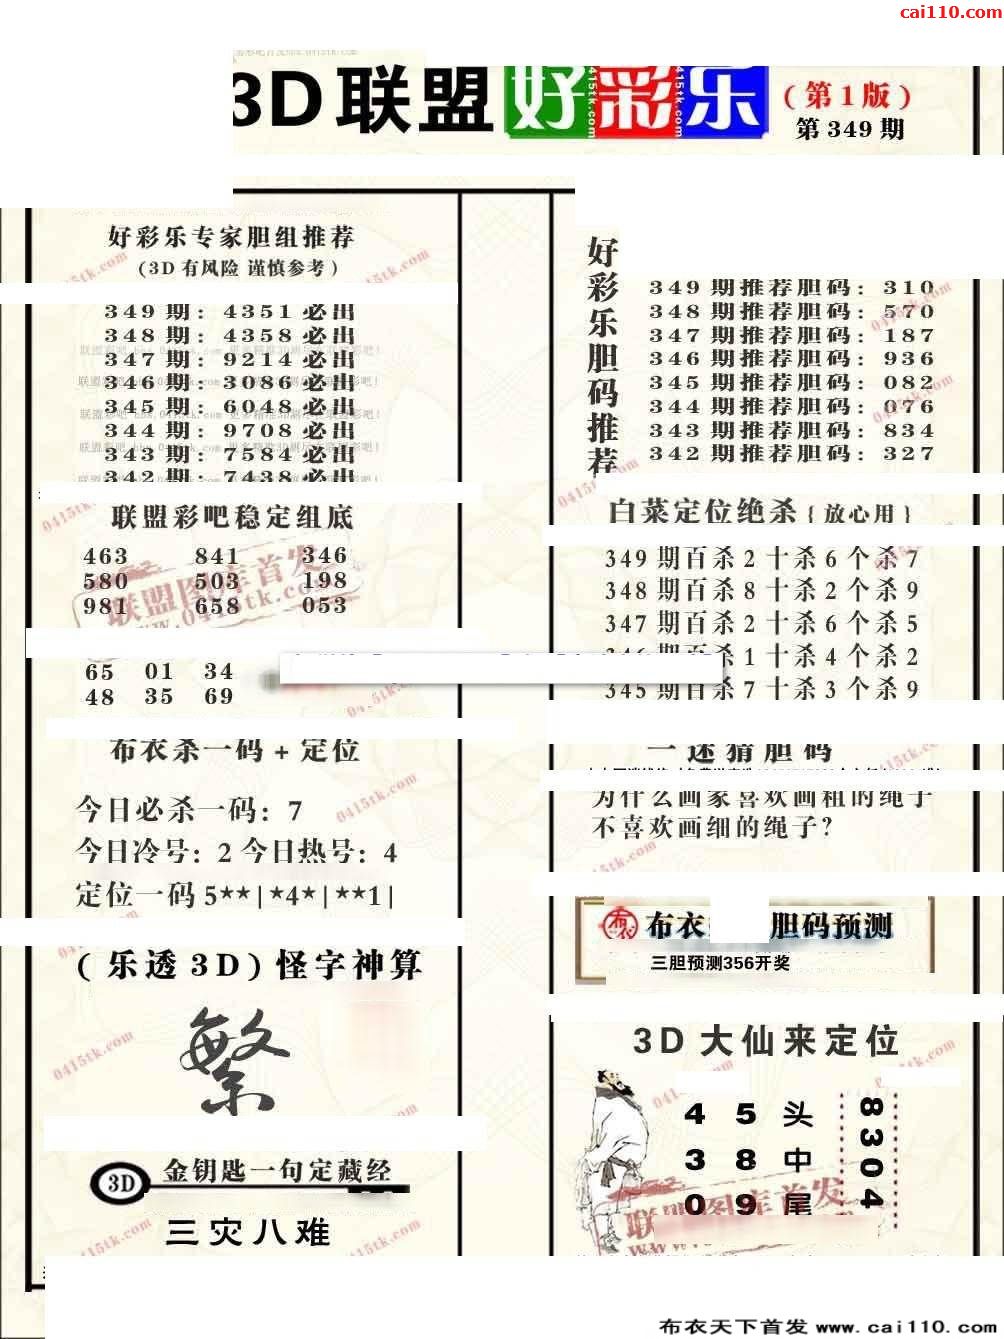 cai110.com
3D联盟好彩乐
(第1版)
第349期
好彩乐专家胆组推荐
(3D有风险 谨慎参考)
349期: 4351必出
348期: 4358必出
347期: 9214必出
346期: 3086必出
345期: 6048必出
344期: 9708必出
343期: 7584必出
342期: 7438必出
联盟彩吧稳定组底
463 841 346
580 503 198
981 658 053
65 01 34
48 35 69
布衣杀一码+定位
今日必杀一码: 7
今日冷号: 2 今日热号: 4
定位一码 5**|*4*|**1|
(乐透3D)怪字神算
繁
3D 金钥匙一句定藏经
三灾八难
好彩乐胆码推荐
349期推荐胆码: 310
348期推荐胆码: 570
347期推荐胆码: 187
346期推荐胆码: 936
345期推荐胆码: 082
344期推荐胆码: 076
343期推荐胆码: 834
342期推荐胆码: 327
白菜定位绝杀{放心用}
349期百杀2十杀6个杀7
348期百杀8十杀2个杀9
347期百杀2十杀6个杀5
346期百杀1十杀4个杀2
345期百杀7十杀3个杀9
一迷猜胆码
为什么画家喜欢画粗的绳子
不喜欢画细的绳子?
布衣 布衣 胆码预测
三胆预测356开奖
3D大仙来定位
4 5 头
3 8 中
0 9 尾
8304
联盟图库首发
0415tk.com
布衣天下首发 www.cai110.com